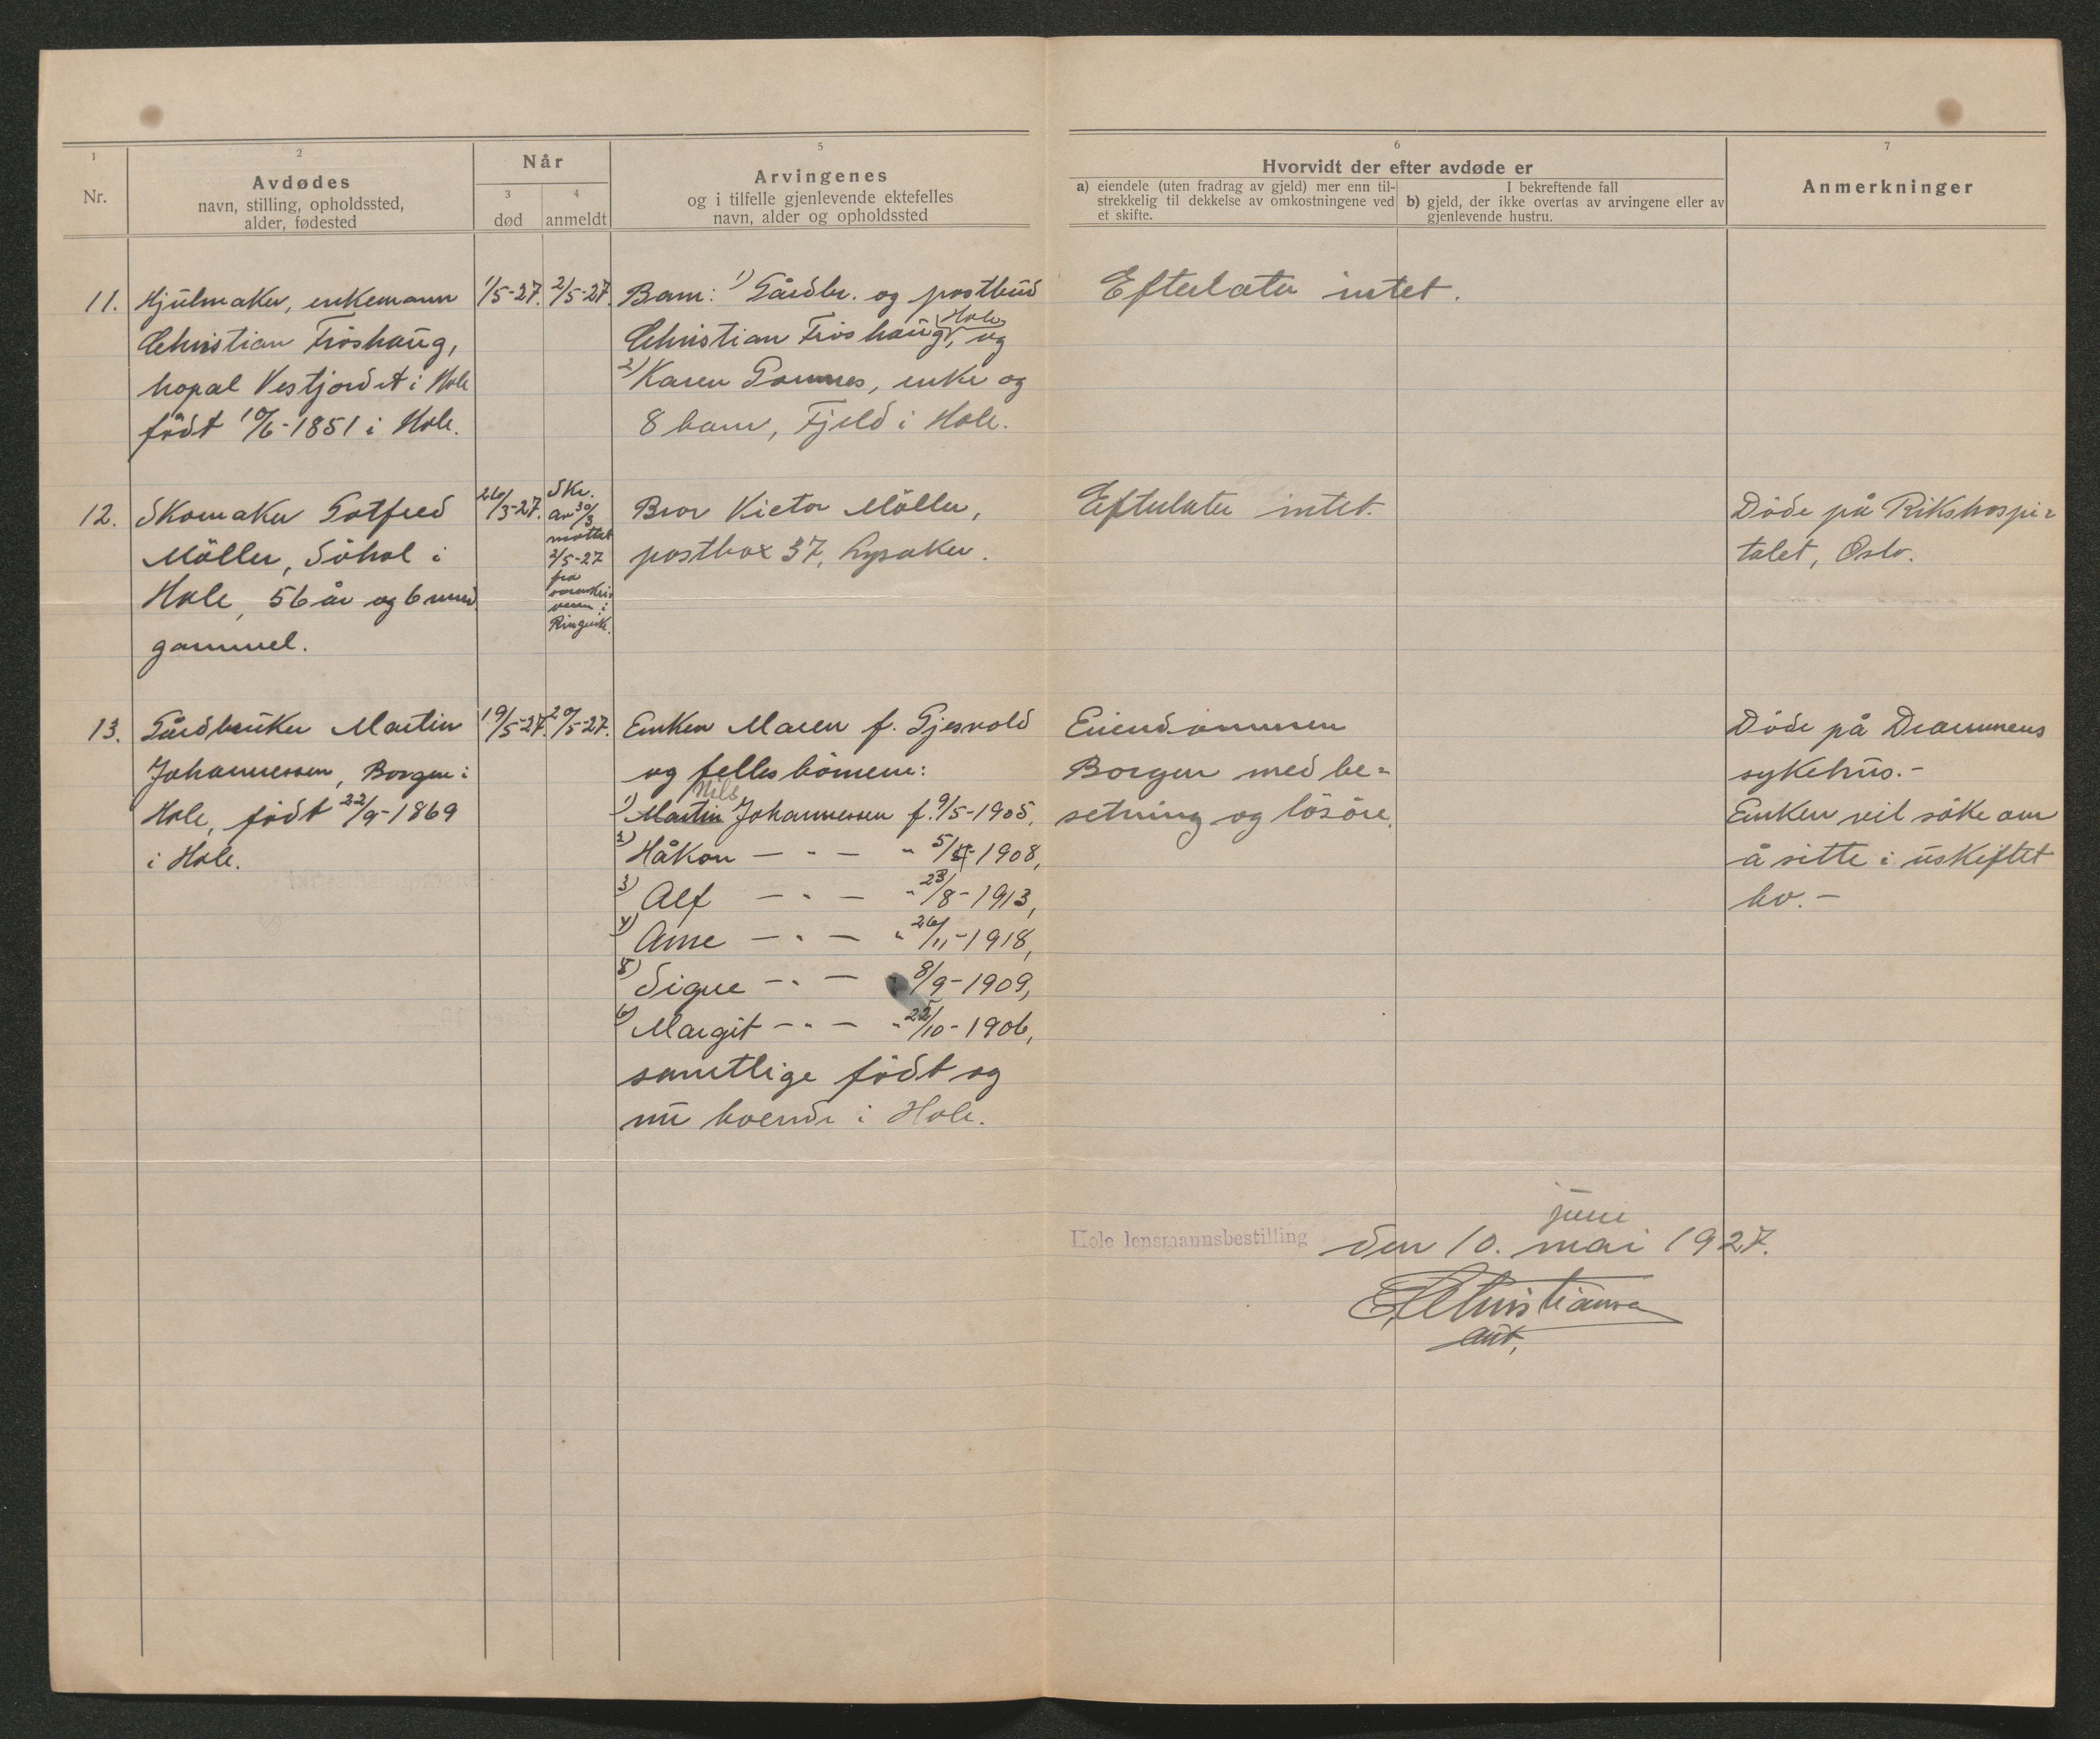 1
Nr.
2
Avdødes
navn, stilling, opholdssted,
alder, fødested
Når
3
død
4
anmeldt
5
Arvingenes
og i tilfelle gjenlevende ektefelles
navn, alder og opholdssted
6
Hvorvidt der efter avdøde er
a) eiendele (uten fradrag av gjeld) mer enn til-
strekkelig til dekkelse av omkostningene ved
et skifte.
I bekreftende fall
b) gjeld, der ikke overtas av arvingene eller av
gjenlevende hustru.
7
Anmerkninger
11.
Hjulmaker, enkemann
Christian Fröshaug,
Vestjordet i Hole
födt 10/6-1851 i Hole.
1/5-27.
2/5-27.
Barn: 1) Gårdbr. og postbud
Christian Fröshaug, Hole, og
2) Karen Gomnes, enke og
8 barn, Fjeld i Hole.
Efterlater intet.
12.
Skomaker Gotfred
Möller, Söhol i
Hole, 56 år og 6 mnd
gammel.
26/3-27.
Skr.
av 30/3
mottat
2/5-27
fra
sorenskri-
veren i
Ringerike.
Bror Victor Möller,
postbox 37, Lysaker.
Efterlater intet.
Döde på Rikshospi=
talet, Oslo.
13.
Gårdbruker Martin
Johannessen, Borgen i
Hole, födt 22/9-1869
i Hole.
19/5-27.
20/5-27.
Enken Maren f. Gjesvold
og felles börnene:
Nils
1) Martin Johannessen f. 9/5-1905,
2) Håkon — " — " 5/-1908,
3) Alf — " — " 23/8-1913,
4) Arne — " — " 26/11-1918,
5) Signe — " — " 8/9-1909,
6) Margit — " — " 22/10-1906,
samtlige födt og
nu boende i Hole.
Eiendommen
Borgen med be=
setning og lösöre.
Döde på Drammens
sykehus.-
Enken vil söke om
å sitte i uskiftet
bo.-
juni
Hole lensmannsbestilling den 10. mai 1927.
Christiansen
aut.